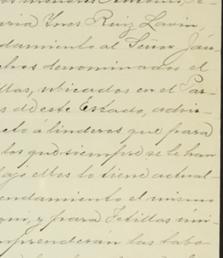 aria Ynes Ruiz Lavin,
damiento al Señor Jau
chos denominados el
llas, ubicados en el Par-
s de este Estado, adric
cto á linderos que para
los que siempre se le han
ago ellos lo tiene actual-
endamiento el mismo
qui, y para Tetillas uni
mprenderán las labo